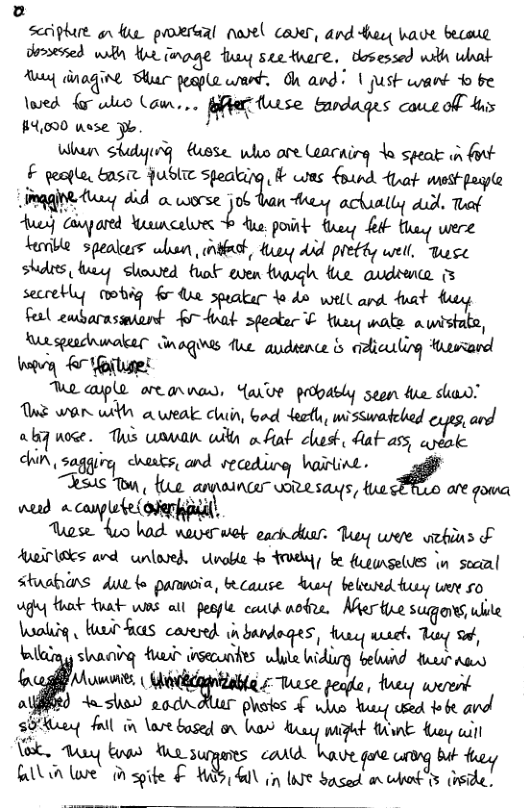 scripture on the proverbial novel cover, and they have become
obssessed with the image they see there. obsessed with what
they imagine other people want. Oh and: I just want to be
loved for who I am... after these bandages come off this
$4,000 nose job.
When studying those who are learning to speak in font
of people, basic public speaking, it was found that most people
imagine they did a worse job than they actually did. That
they compared themselves to the point they felt they were
terrible speakers when, in fact, they did pretty well. These
studies, they showed that even though the audience is
secretly rooting for the speaker to do well and that they
feel embarassment for that speaker if they make a mistake,
the speechmaker imagines the audience is ridiculing them and
hoping for failure.
The couple are on now. You've probably seen the show:
This man with a weak chin, bad teeth, missmatched eyes, and
a big nose. This woman with a flat chest, flat ass, weak
chin, sagging cheeks, and receding hairline.
Jesus Tom, the announcer voice says, these two are gonna
need a complete overhaul!
These two had never met eachother. They were victims of
their looks and unloved. Unable to truely, be themselves in social
situations due to paranoia, because they believed they were so
ugly that that was all people could notice. After the surgeries, while
healing, their faces covered in bandages, they meet. They sat,
talking, sharing their insecurities while hiding behind their new
faces. Mummies. Unrecognizable. These people, they weren't
allowed to show each other photos of who they used to be and
so they fall in love based on how they might think they will
look. They know the surgeries could have gone wrong but they
fall in love in spite of this, fall in love based on what is inside.